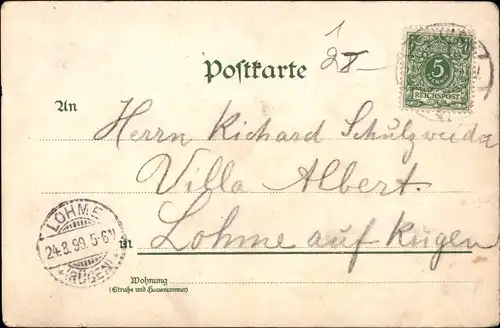 Postkarte
5
REICHSPOST
An
Herrn Richard
Villa Albert.
in Lohme auf Rügen
LOHME
24.8.99. 5-6N
*(RÜGEN)*
Wohnung
(Straße und Hausnummer)